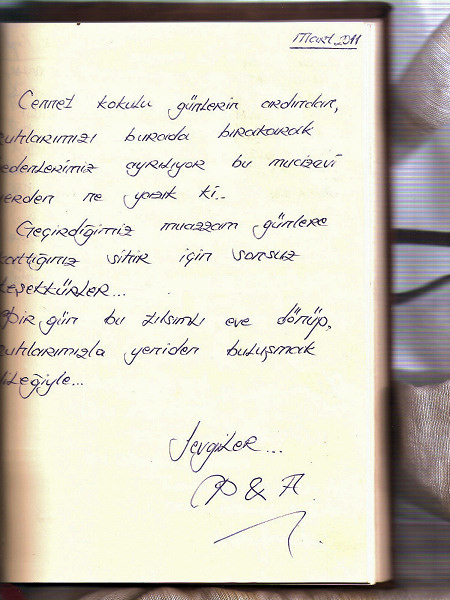 Mart 2011
Cennet kokulu günlerin ardından,
uhlarımızı burada bırakarak
edenlerimiz ayrılıyor bu muazevi
erden ne yazık ki..
Geçirdiğimiz muazzam günlere
kattığınız sihir için sonsuz
teşekkürler...
Bir gün bu tılsımlı eve dönüp,
uhlarımızla yeniden buluşmak
dileğiyle...
Sevgiler...
& A.